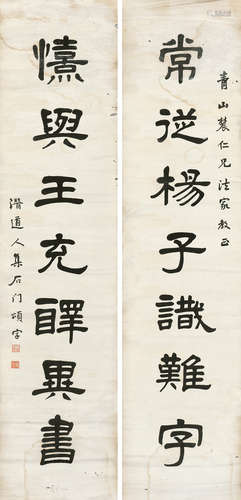 青山農仁兄法家教正
常從楊子識難字
憘與王充釋異書
潛道人集石门頌字